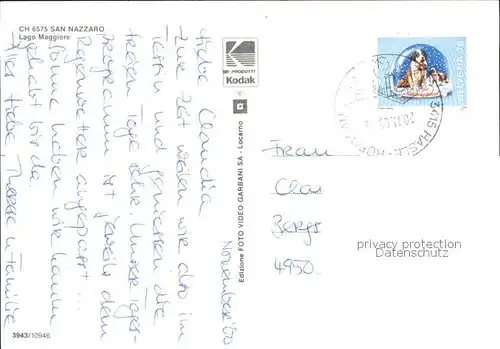 CH 6575 SAN NAZZARO
Lago Maggiore
November '00
Liebe Claudia
Zur Zeit weilen wir also im
Tessin und geniessen die
freien Tage sehr. Unser Tages-
programm ist jeweils dem
Regenwetter angepasst...
Sonne haben wir kaum
gehabt bis da.
Alles Liebe Therese u. Familie
MF PRODOTTI
Kodak
Edizione FOTO VIDEO GARBANI SA - Locarno
3943/10946
HELVETIA
3415 HASLE-
Frau
Clau
Bergs
4950
privacy protection
Datenschutz